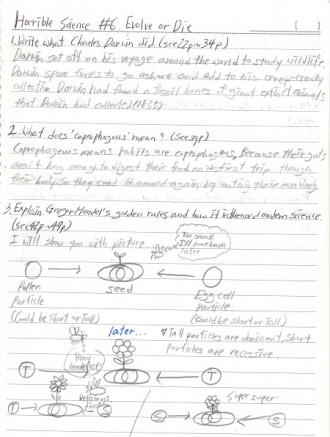 Horrible Science #6. Evolve or Die ( )
1. Write what Charles Darwin did (see 22p~34p)
Darwin set off on his voyage around the world to study wildlife.
Darwin spare times to go ashore and add to his creepy-crawly
collection Darwin had found a fossil bones of giant extinct animals
that Darwin had collected (1835)
2. What does 'coprophageous' mean? (See 39p)
Coprophageous means habits are coprophageous, Because their guts
aren't long enough to digest their food on its first trip though
their body. So they send it around again by eating their own
3. Explain Gregor Mendel's golden rules and how it influenced modern science
(see 42p~49p)
I will show you with picture
Too small
I'll come back
later
Pollen
Particle
(Could be Short or Tall)
seed
Egg cell
particle
(Could be short or Tall)
later...
Tall particles are dominent, Short
Particles are recesive.
T
T
Delicious
super super
T
S
S
S